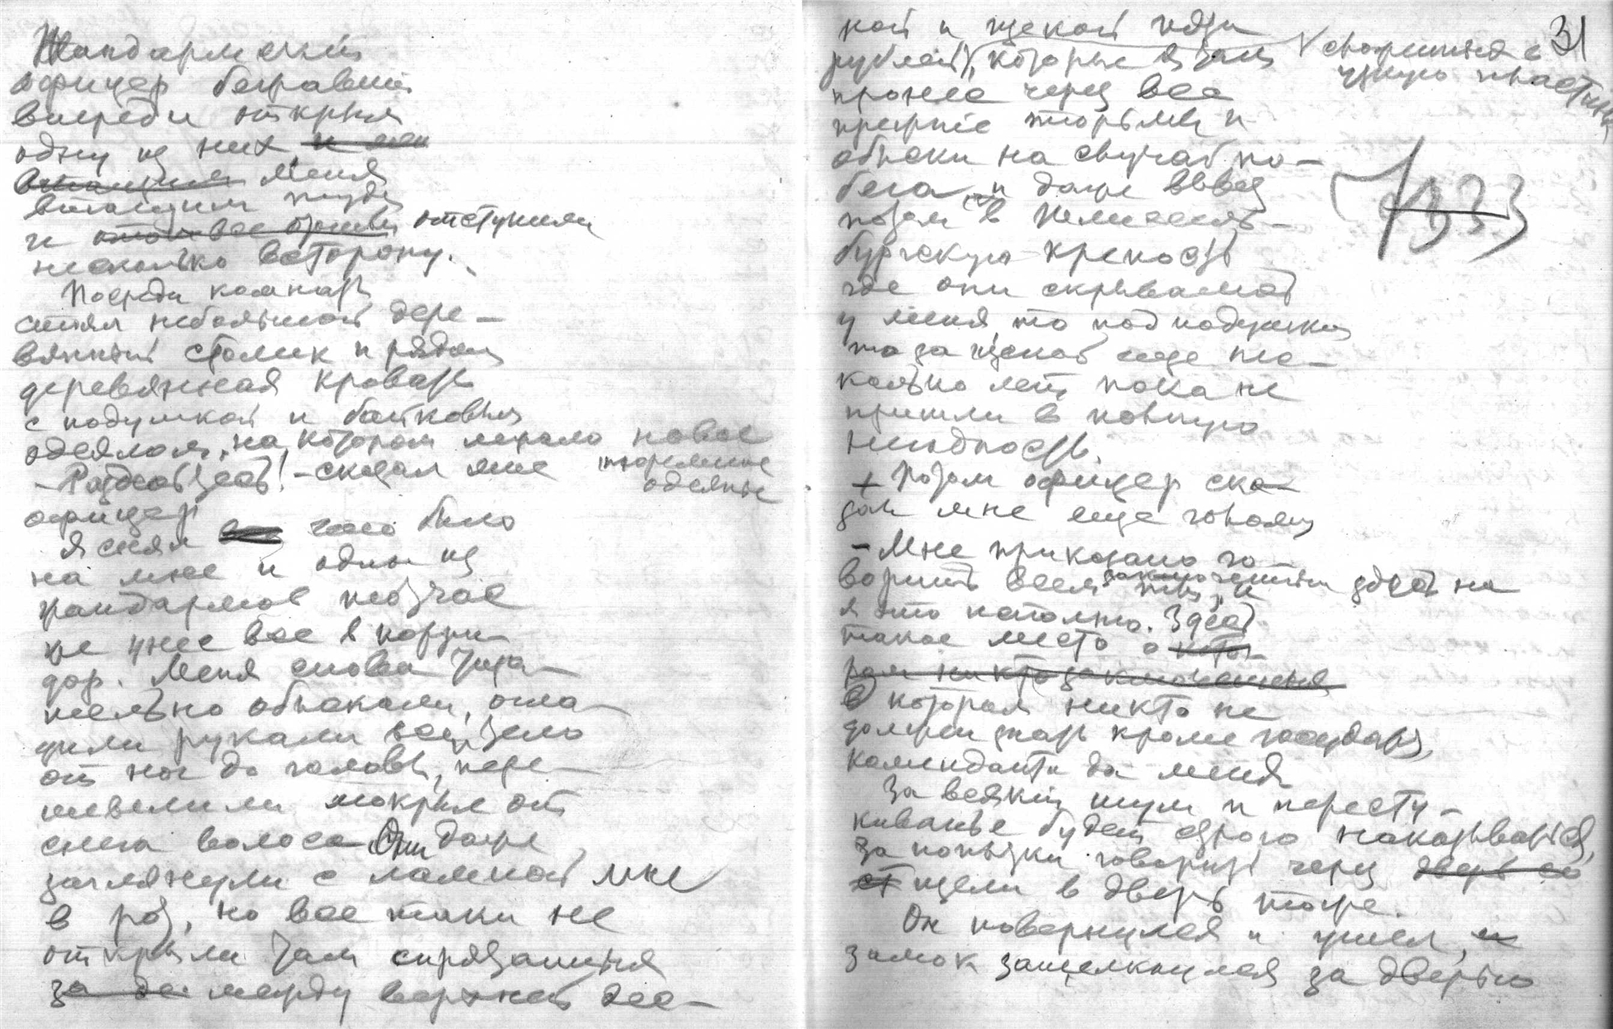 Жандармский
офицер бежавший
впереди открыл
одну из них и меня
втащили меня
втащили туда
и все отступили
несколько в сторону.
Посреди комнаты
стоял небольшой дере-
вянный столик и рядом
деревянная кровать
с подушкой и байковым
одеялом, на котором лежало новое
тюремное
одеянье
- Раздевайтесь! - сказал мне
офицер
Я снял все что было
на мне и один из
жандармов тотчас
же унес все в корри-
дор. Меня снова тща-
тельно обыскали, огла-
дили руками все тело
от ног до головы, пере-
шевелили мокрые от
снега волоса. Они даже
заглянули с лампой мне
в рот, но все таки не
открыли там спрятанныя
за де между верхней дес-
ной и щекой пять
рублей, которые я там
свернутыя в
узкую пластинку
31
пронес через все
прежние тюрьмы и
обыски на случай по-
бега, и даже ввез
потом в Шлиссель-
бургскую крепость
где они скрывались
у меня то под подушкой
то за щекой еще не-
сколько лет пока не
пришли в полную
негодность.
7833
+ Потом офицер ска-
зал мне еще говоря
- Мне приказано го-
ворить всем заключенным здесь ты и
я это исполню. Здесь
такое место о кото-
ром никто заключенный
в котором никто не
должен знать кроме государя,
коменданта да меня
За всякий шум и пересту-
киванье будет строго наказываться,
за попытки говорить через дверь со
ст щели в дверь тоже.
Он повернулся и ушел, и
замок защелкнулся за дверью